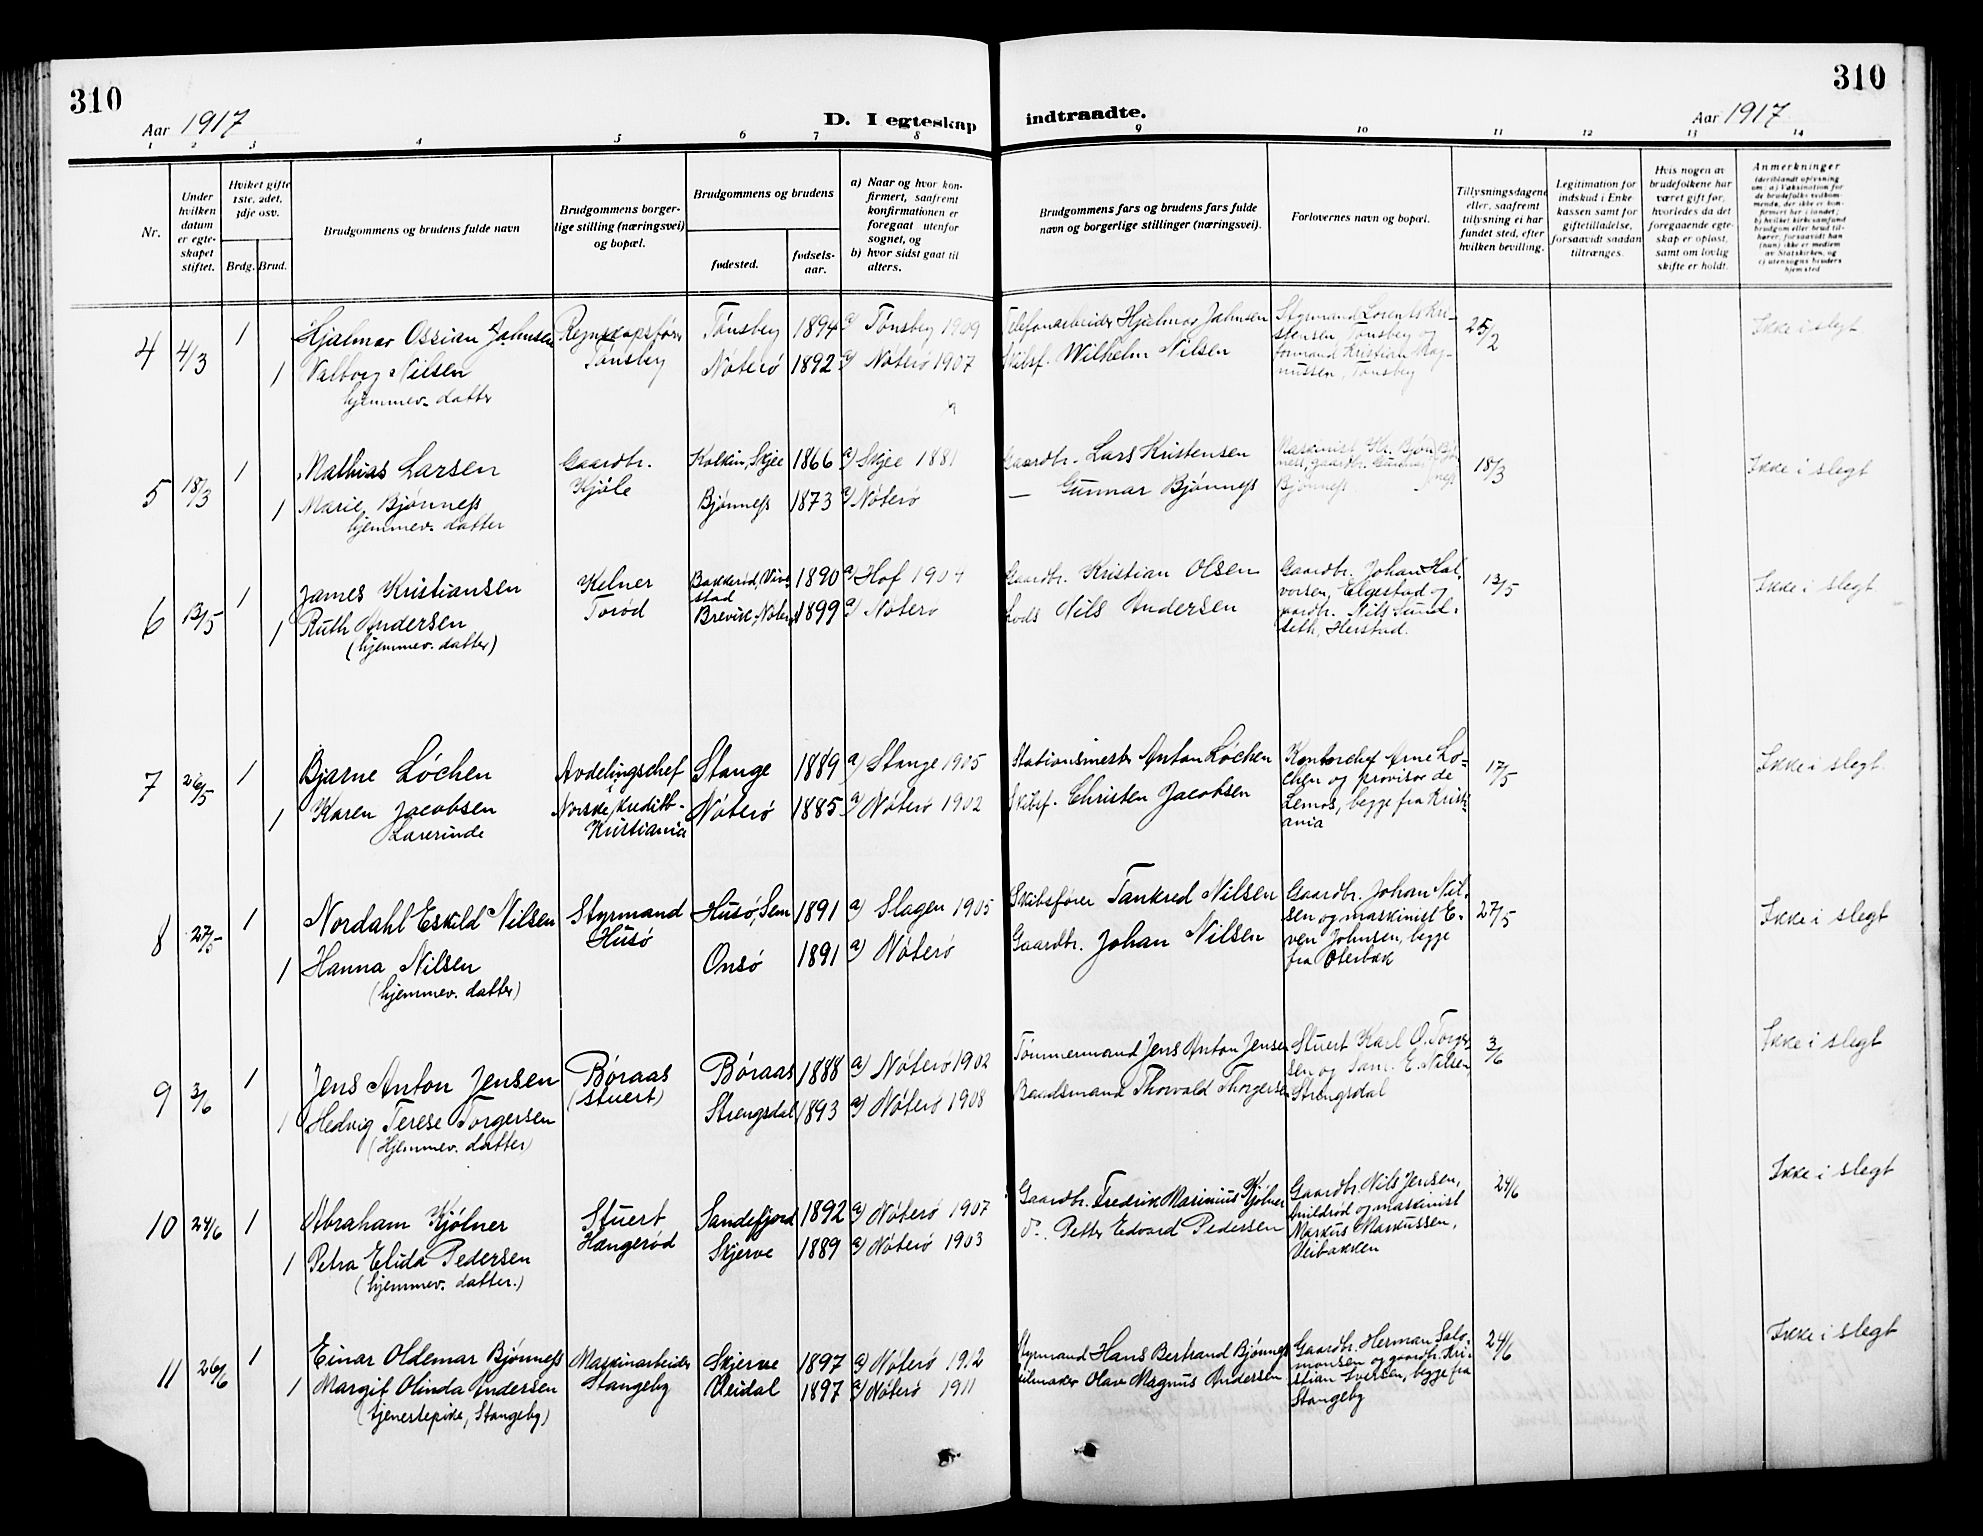 310
310
Aar 1917
D. I egteskap indtraadte.
Aar 1917
1 2 3 4 5 6 7 8 9 10 11 12 13 14
Nr.
Under hvilken datum er egteskapet stiftet.
Hviket gifte 1ste, 2det, 3dje osv.
Brdg. Brud.
Brudgommens og brudens fulde navn
Brudgommens borgerlige stilling (næringsvei) og bopæl.
Brudgommens og brudens
fødested.
fødselsaar.
a) Naar og hvor konfirmert, saafremt konfirmationen er foregaat utenfor sognet, og
b) hvor sidst gaat til alters.
Brudgommens fars og brudens fars fulde navn og borgerlige stillinger (næringsvei).
Forlovernes navn og bopæl.
Tillysningsdagene eller, saafremt tillysning ei har fundet sted, efter hvilken bevilling.
Legitimation for indskud i Enkekassen samt for giftetilladelse, forsaavidt saadan tiltrænges.
Hvis nogen av brudefolkene har været gift før, hvorledes da det foregaaende egteskap er opløst, samt om lovlig skifte er holdt.
Anmerkninger
4
4/3
1
1
Hjalmar Ossian Jahnsen
Valborg Nilsen
hjemmev. datter
Regnskapsfører
Tønsberg
Tønsberg 1894 a) Tønsberg 1909
Nøterø 1892 a) Nøterø 1907
Telefonarbeider Hjalmar Jahnsen
Skibsf. Wilhelm Nilsen
Styrmand Lorents Kri-
stensen Tønsberg og
formand Kristian Mag-
nussen, Tønsberg
25/2
Ikke i slegt
5
18/3
1
1
Mathias Larsen
Marie Bjønness
hjemmev. datter
Gaardbr.
Kjøle
Kolkin, Skjee 1866 a) Skjee 1881
Bjønness 1873 a) Nøterø
Gaardbr. Lars Kristensen
— Gunnar Bjønness
Maskinist Kr. Bjøn-
ness, gaardbr. Gunnar
Bjønness
18/3
Ikke i slegt
6
13/5
1
1
James Kristiansen
Ruth Andersen
(hjemmev. datter)
Kelner
Torød
Bakkerød, Viv-
stad
1890 a) Hof 1904
Brevik, Nøterø 1899 a) Nøterø
Gaardbr. Kristian Olsen
Lods Nils Andersen
Gaardbr. Johan Hal-
vorsen, Elgestad og
gaardbr. Nils Sund-
seth, Herstad.
13/5
Ikke i slegt
7
26/5
1
1
Bjarne Løchen
Karen Jacobsen
Lærerinde
Avdelingschef
Norske Kreditt-
Kristiania
Stange 1889 a) Stange 1905
Nøterø 1885 a) Nøterø 1902
Stationsmester Anton Løchen
Skibsf. Christen Jacobsen
Kontorchef Arne Lø-
chen og provisor de
Lemos, begge fra Kristi-
ania
17/5
Ikke i slegt
8
27/5
1
1
Nordahl Eskild Nilsen
Hanna Nilsen
(hjemmev. datter)
Styrmand
Husø
Husø, Sem 1891 a) Slagen 1905
Onsø 1891 a) Nøterø
Skibsfører Tankred Nilsen
Gaardbr. Johan Nilsen
Gaardbr. Johan Nil-
sen og maskinist E-
ven Johnsen, begge
fra Oterbæk
27/5
Ikke i slegt
9
3/6
1
1
Jens Anton Jensen
Hedvig Terese Torgersen
(Hjemmev. datter)
Børaas
(stuert)
Børaas 1888 a) Nøterø 1902
Strengsdal 1893 a) Nøterø 1908
Tømmermand Jens Anton Jensen
Baadsmand Thorvald Thorgersen
Stuert Karl O. Torger-
sen og Sam. E. Nilsen,
Strengsdal
3/6
Ikke i slegt
10
24/6
1
1
Abraham Kjølner
Petra Elida Pedersen
(hjemmev. datter.)
Stuert
Hængerød
Sandefjord 1892 a) Nøterø 1907
Skjerve 1889 a) Nøterø 1903
Gaardbr. Fredrik Marinius Kjølner
Petter Edvard Pedersen
Gaardbr. Nils Jensen,
og maskinist
Markus Markussen,
Veibakken
24/6
Ikke i slegt
11
26/6
1
1
Einar Oldemar Bjønness
Margit Olinda Andersen
(tjenestepike, Stangeby)
Maskinarbeider
Stangeby
Skjerve 1897 a) Nøterø 1912
Veidal 1897 a) Nøterø 1911
Styrmand Hans Bertrand Bjønness
Seilmaker Olav Magnus Andersen
Gaardbr. Herman Salo-
monsen og gaardbr. Kri-
stian Iversen, begge fra
Stangeby
24/6
Ikke i slegt